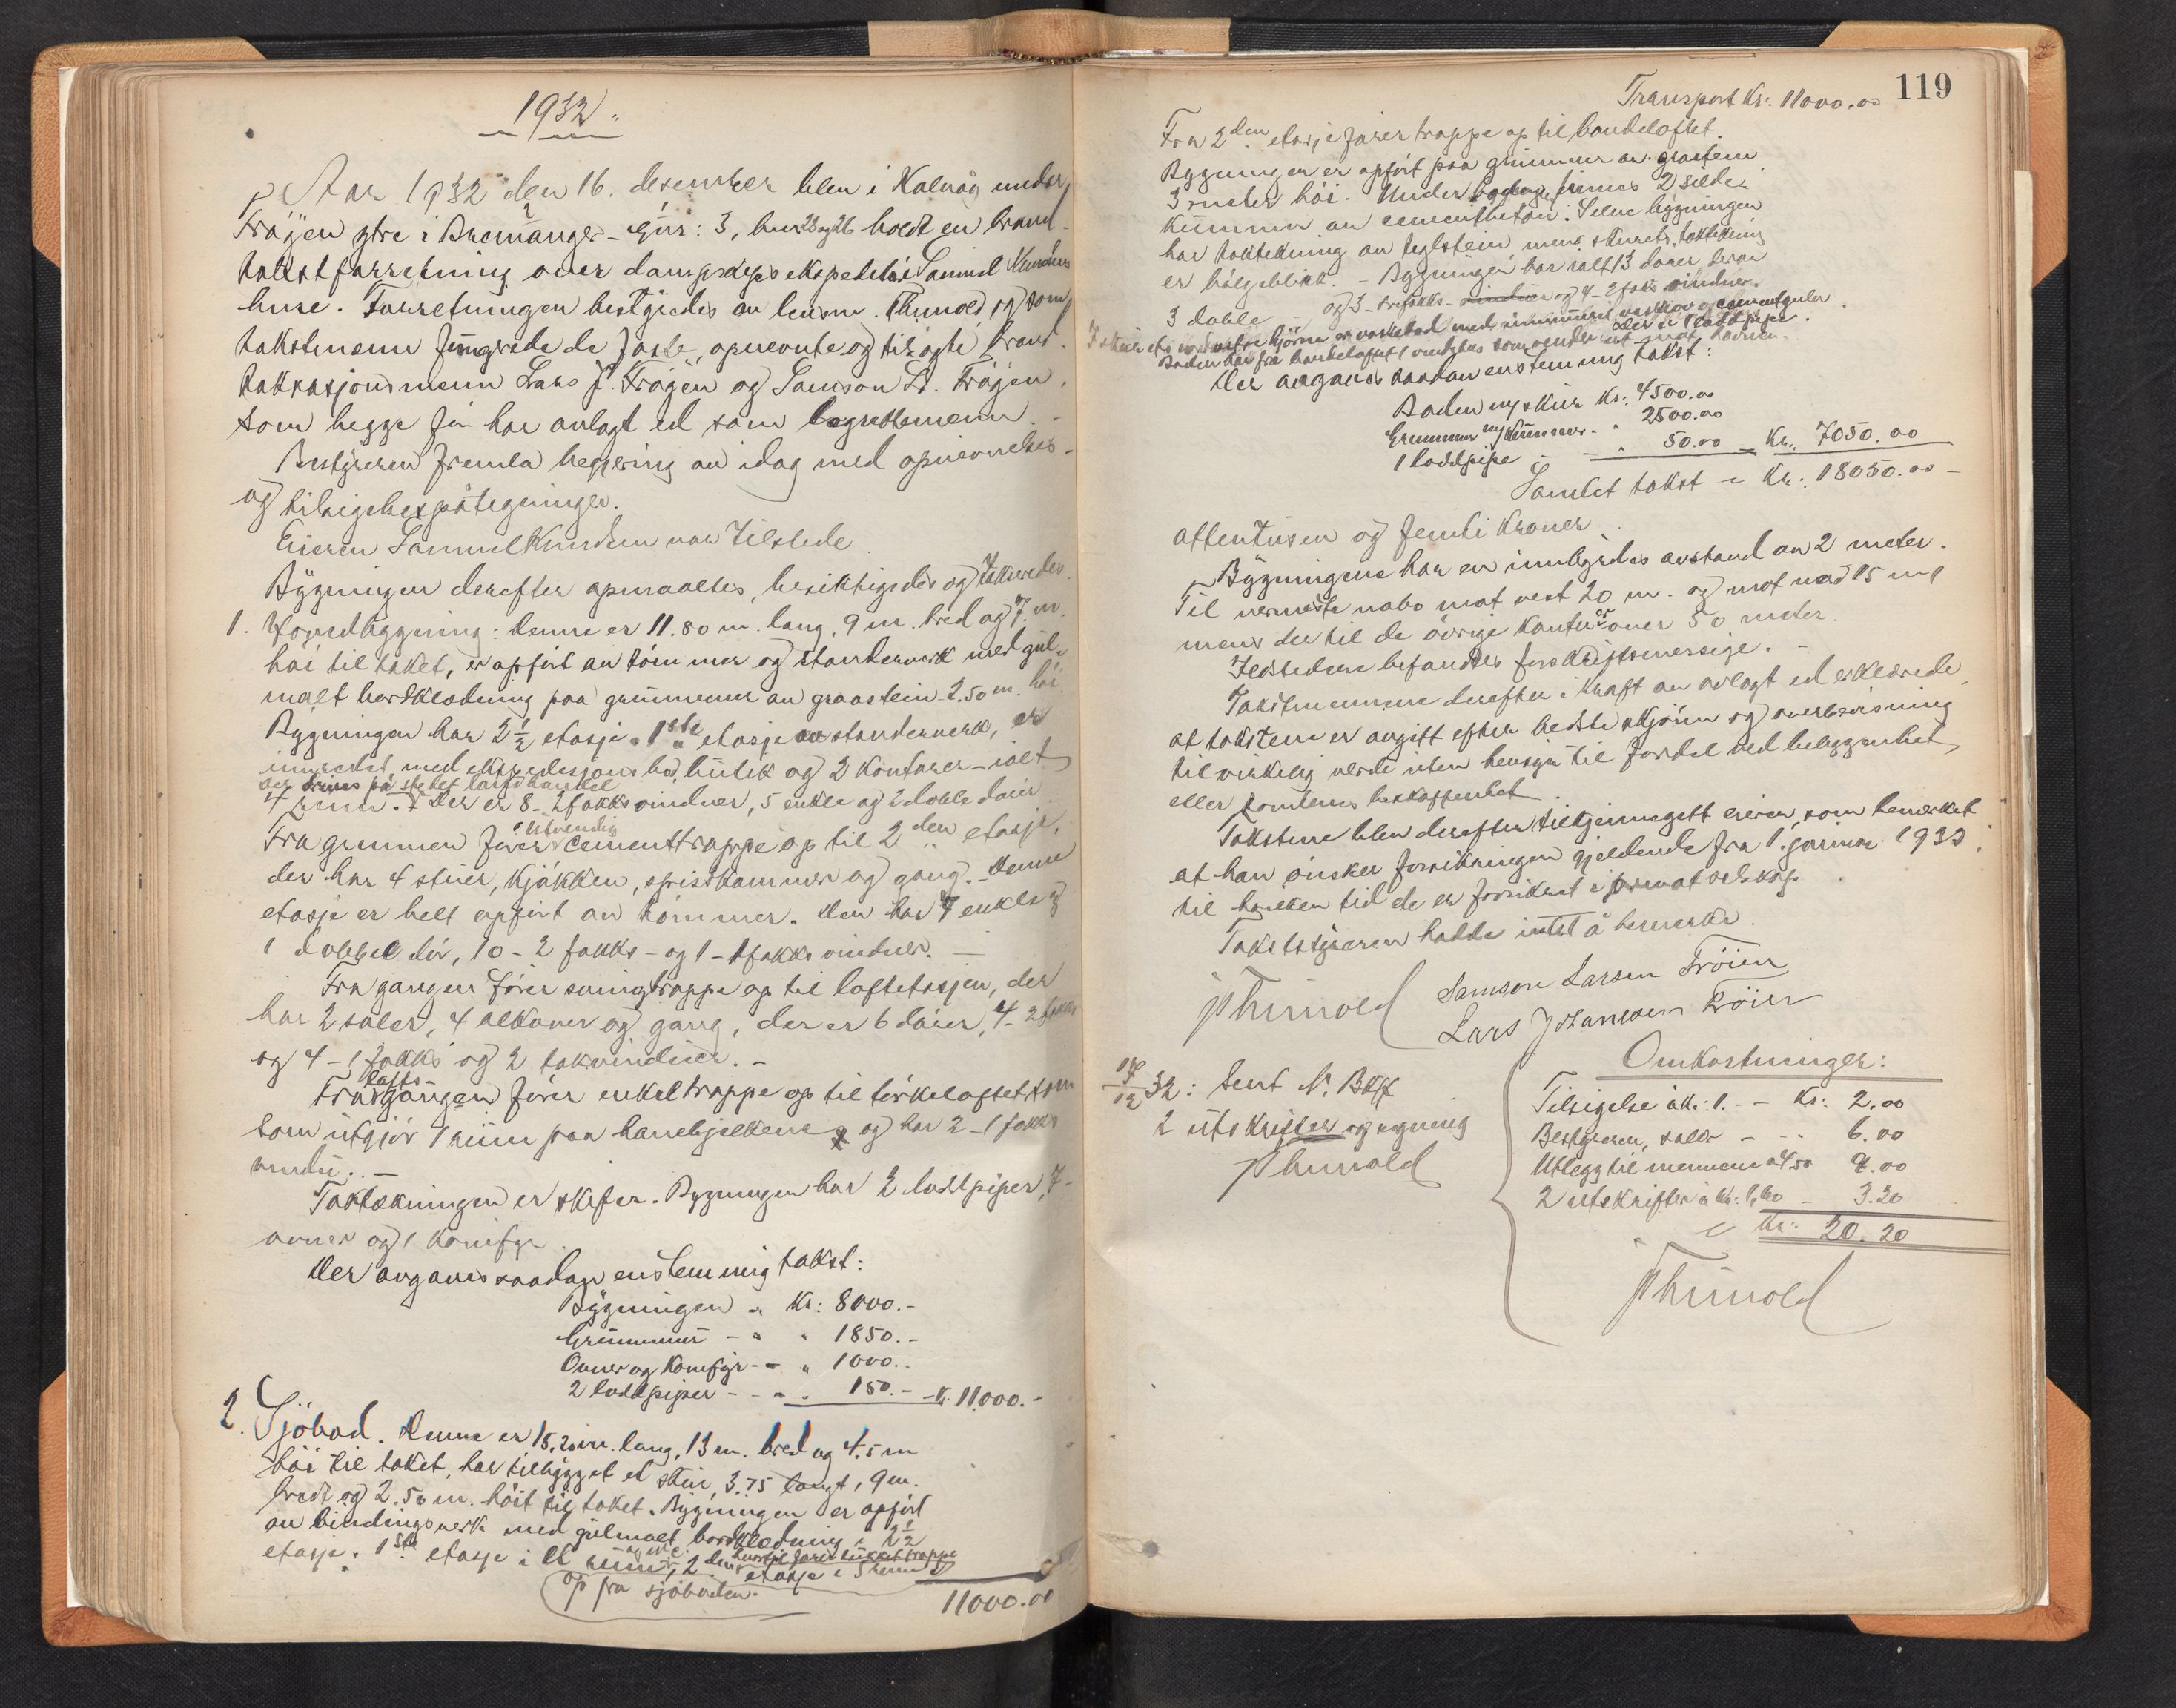 1932.
Aar 1932 den 16. desember blev i Kalvåg under
Frøyen ytre i Bremanger - Gnr: 3, bnr 22 og 26 holdt en brand-
takstforretning over dampskipsekspeditør Samuel Knudsens
huse. Forretningen bestyredes av lensm. Thunold og som
takstmenn fungerede de faste, opnevnte og tilsagte brand-
taksasjonsmenn Lars J. Frøyen og Samson L. Frøyen,
som begge før har avlagt ed som lagrettemenn. -
Bestyreren fremla begjering av idag med opnevnelses-
og tilsigelsespåtegninger.
Eieren Samuel Knudsen var tilstede.
Bygningen derefter opmaaltes, besiktigedes og takseredes.
1. Hovedbygning: denne er 11.80 m. lang, 9 m. bred og 7. m.
høi til taket, er opført av tømmer og standerverk med gul-
malt bordklædning paa grunnmur av graastein 2.50 m. høi
Bygningen har 2 1/2 etasje. 1ste etasje av standerverk, er
innredet med ekspedisjons bod, butik og 2 kontorer - ialt
der drives på stedet landhandel
4 rum. Der er 8 - 2 fakks vinduer, 5 enkle og 2 doble dører
Fra grunnen fører utvendig cementtrappe op til 2den etasje,
der har 4 stuer, kjøkken, spiskammer og gang. - Denne
etasje er helt opført av tømmer. Den har 7 enkle og
1 dobbel dør, 10 - 2 fakks - og 1 - 1 fakks vinduer. -
Fra gangen fører svingtrappe op til loftetasjen, der
har 2 saler, 4 alkover og gang, der er 6 dører, 4 - 2 fakks
og 4 - 1 fakks og 2 takvinduer. -
Fra lofts-gangen fører enkel trappe op til tørkeloftet som
som utgjør 1 rum paa hanebjelkene og har 2 - 1 fakks
vindu. -
Taktækningen er skifer. Bygningen har 2 loddpiper, 7 -
ovner og 1 komfyr.
Der avgaves saadan enstemmig takst:
Bygningen - Kr: 8000.-
Grunnmur - " " 1850.-
Ovner og komfyr - - " 1000..
2 loddpiper - - " . 150.- - Kr. 11000.-
2. Sjøbod. Denne er 15,20 m. lang, 13 m. bred og 4.5 m
høi til taket, har tilbygget et skur, 3.75 langt, 9 m.
bredt og 2.50 m. høit til taket. Bygningen er opført
av bindingsverk med gulmalt bordklædning i 2 1/2
etasje. 1ste etasje i et rum og w.c., 2den etasje i 5 rum
hvortil fører lukket trappe
op fra sjøboden.
11000.00
119
Transport Kr: 11000.00
Fra 2den etasje fører trappe op til bandeloftet.
Bygningen er opført paa grunnmur av graastein
3 meter høi. Under finnes 2 silde-
kummer av cementbeton. Selve bygningen
har taktekning av teglstein mens skurets taktekning
er bølgeblikk. - Bygningen har ialt 13 dører derav
3 doble og 3 - trefakks - vinduer og 4 - 2 faks vinduer.
I nordvestre hjørne er vaskebod med innmuret og cementgulv.
Boden har fra bandeloftet 1 vindehus som vender ut mot havnen. der er 1 loddpipe.
Der avgaves saadan enstemmig takst:
Boden m/ skur Kr: 4500.00
Grunnmur m/ kummer. " 2500.00
1 loddpipe - - " 50.00 = Kr. 7050.00
Samlet takst = Kr: 18050.00 -
attentusen og femti kroner.
Bygningene har en innbyrdes avstand av 2 meter.
Til nermeste nabo mot vest 20 m. og mot nord 15 m
mens der til de øvrige kanter er over 50 meter.
Ildstedene befandtes forskriftsmessige. -
Takstmennene derefter i kraft av avlagt ed erklærede,
at takstene er avgitt efter bedste skjønn og overbevisning
til virkelig verdi uten hensyn til fordel ved beliggenhet,
eller tomtens beskaffenhet.
Takstene blev derefter tilkjennegitt eieren, som bemerket
at han ønsker forsikringen gjeldende fra 1. januar 1933.
til hvilken tid de er forsikret i privat selskap.
Takstbestyreren hadde intet å bemerke.
JThunold Samson Larsen Frøien
Lars Johannesen Frøien
17/12 32: Sent N. Bkff
2 utskrifter og regning
JThunold
Omkostninger:
Tilsigelse à kr: 1. - - Kr: 2.00
Bestyreren, salær - - - 6.00
Utlegg til mennene à 4.50 9.00
2 utskrifter à kr: 1,60 - 3.20
= Kr: 20.20
JThunold